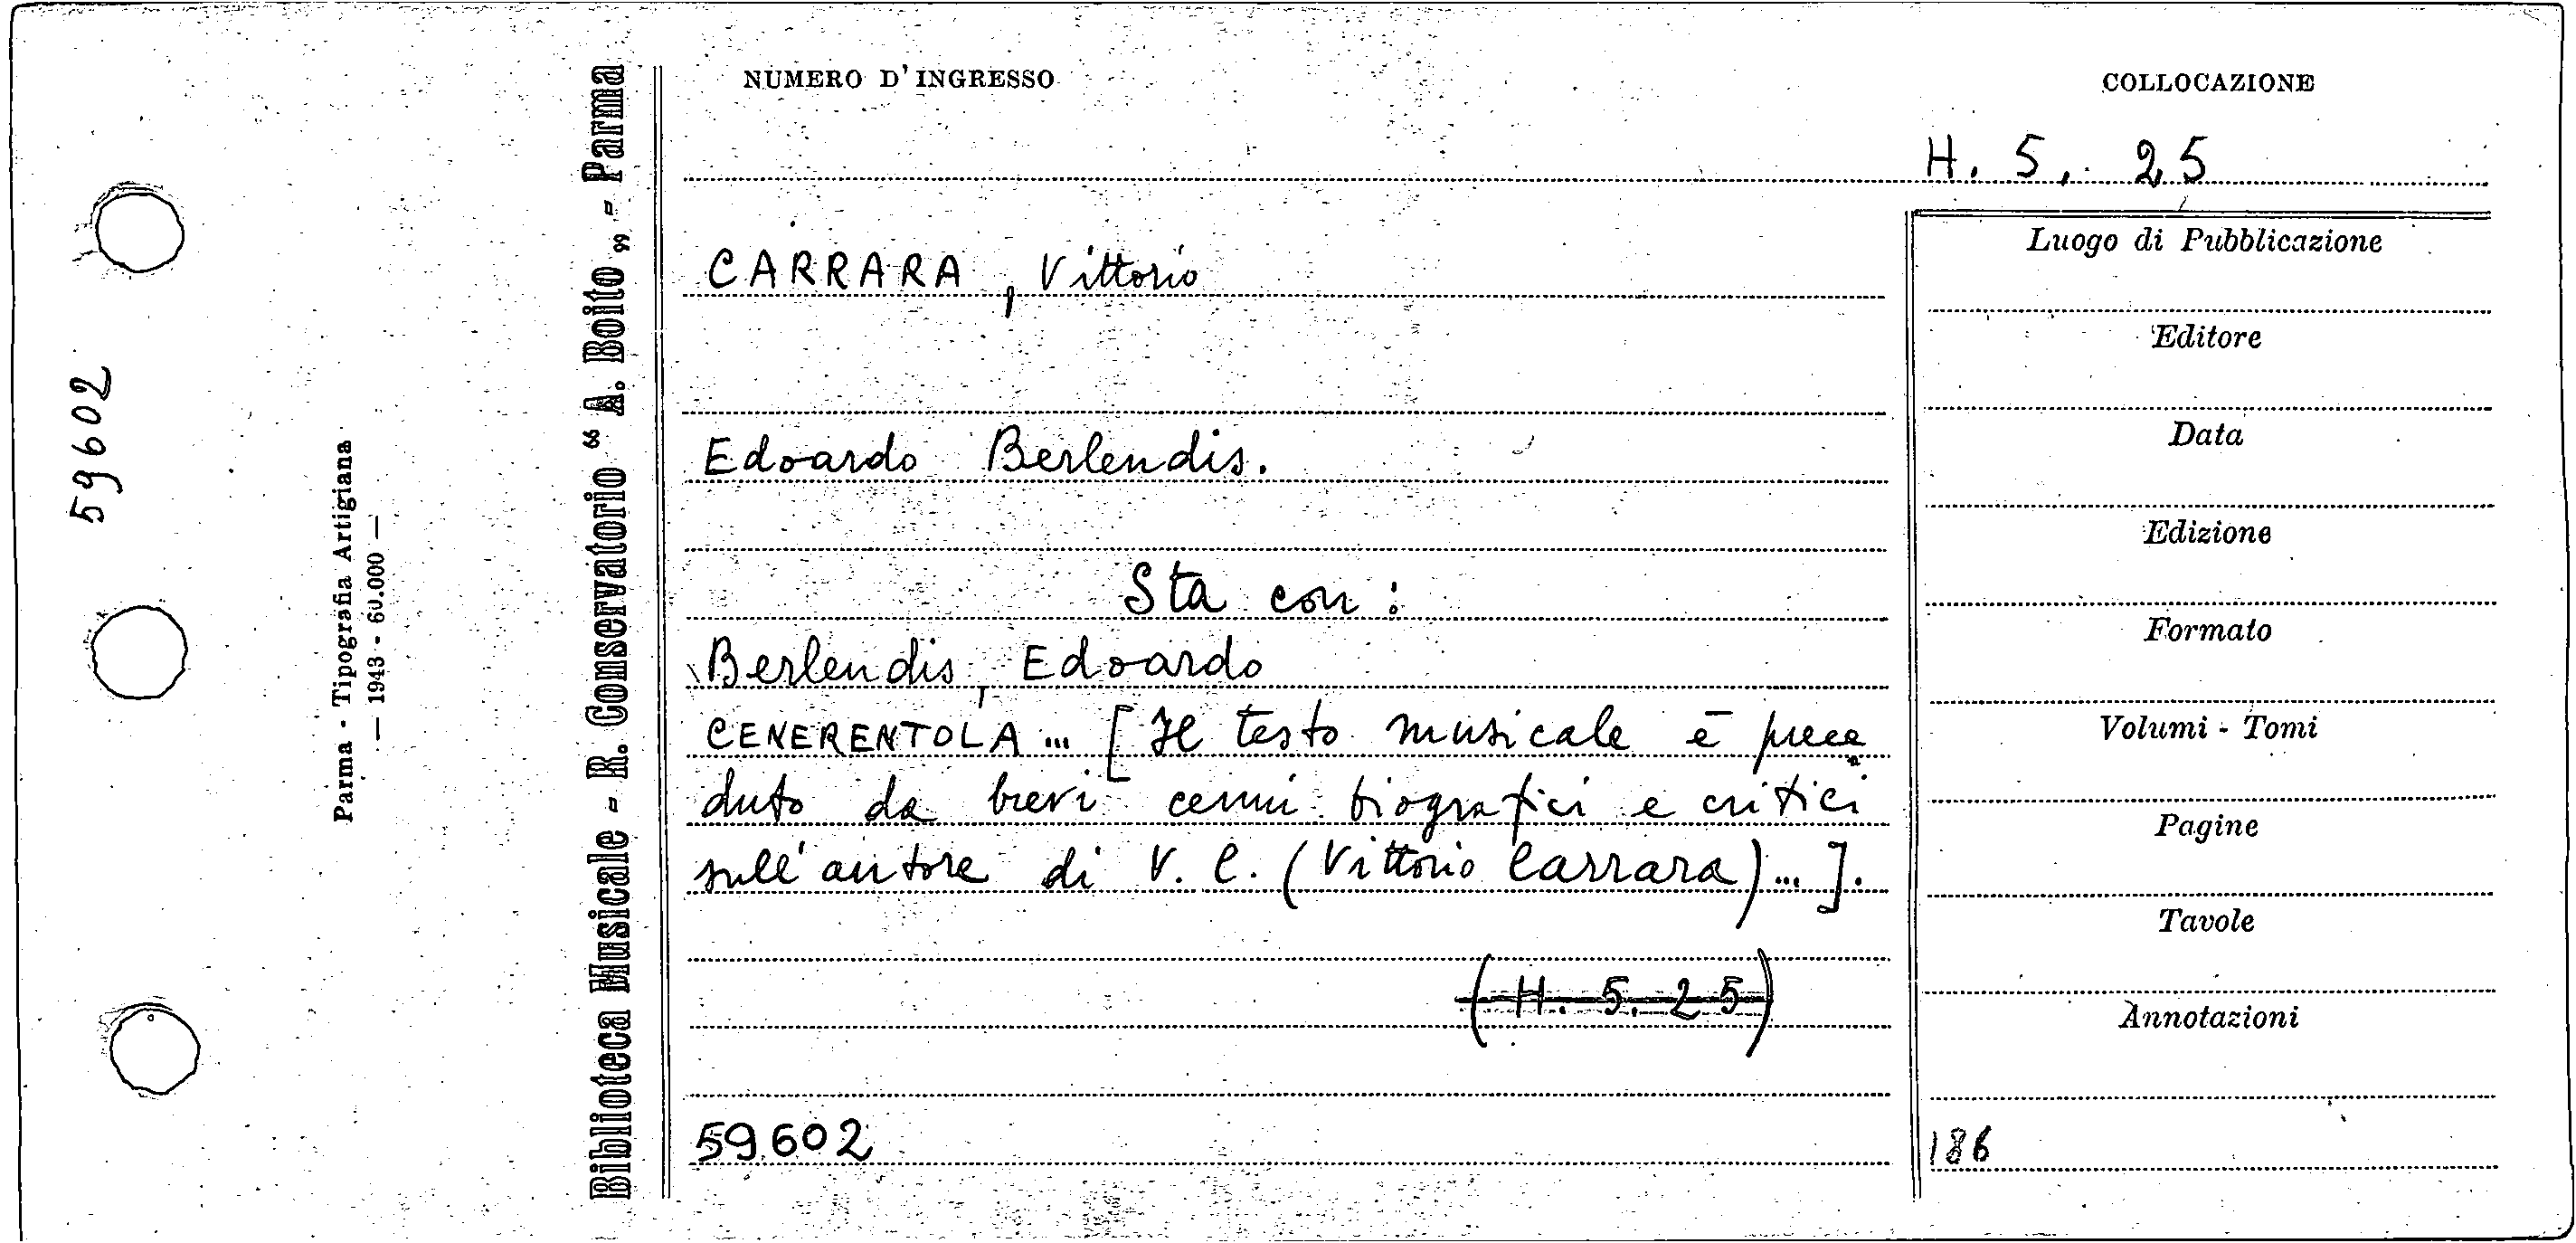 59602
Parma - Tipografia Artigiana
— 1943 - 60.000 —
Biblioteca Musicale - R. Conservatorio “ A. Boito „ - Parma
NUMERO D'INGRESSO
COLLOCAZIONE
H. 5. 25
CARRARA, Vittorio
Edoardo Berlendis.
Sta con :
Berlendis, Edoardo
CENERENTOLA ... [Il testo musicale è prece
duto da brevi cenni biografici e critici
sull'autore di V. C. (Vittorio Carrara)...].
(H. 5. 25)
59602
Luogo di Pubblicazione
Editore
Data
Edizione
Formato
Volumi - Tomi
Pagine
Tavole
Annotazioni
186